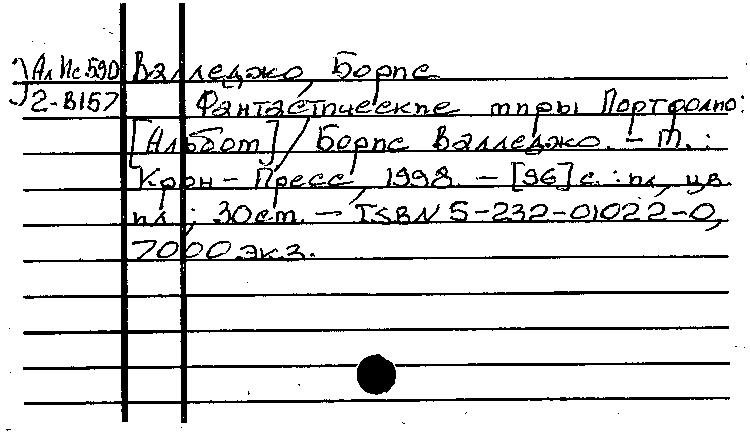 АлИс.590 Валледжо, Борис
2-В157 Фантастические миры Портфолио:
[Альбом] / Борис Валледжо. - М. :
Крон-Пресс, 1998. - [96] с. : ил., цв.
ил. ; 30 см. - ISBN 5-232-01022-0,
7000 экз.